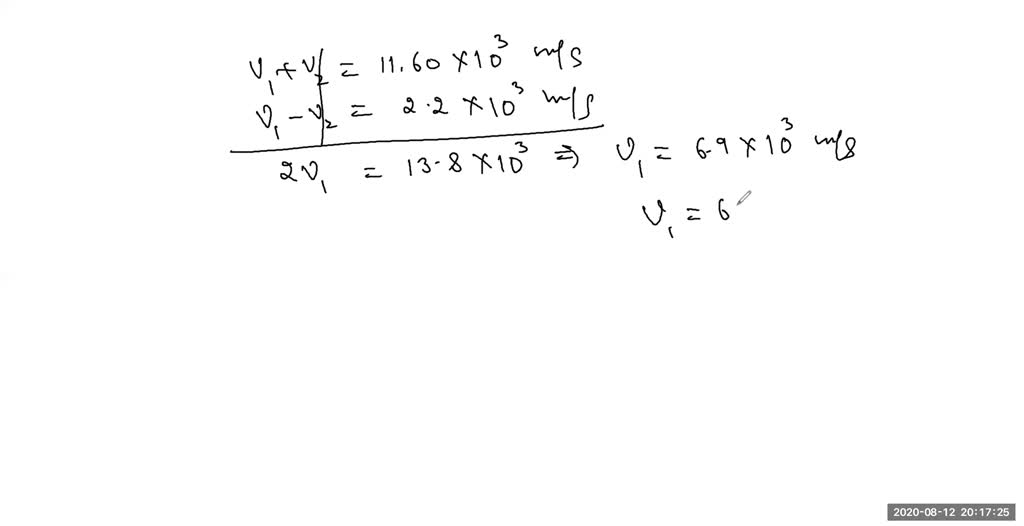 v₁ + v₂ = 11.60 × 10³ m/s
v₁ - v₂ = 2.2 × 10³ m/s
2v₁ = 13.8 × 10³ ⇒ v₁ = 6.9 × 10³ m/s
v₁ = 6
2020-08-12 20:17:25